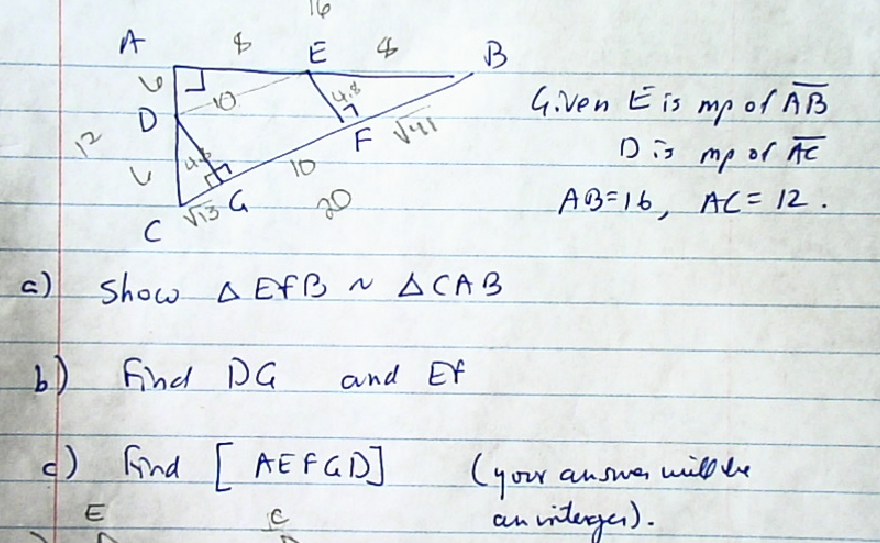 16
A 8 E 8 B
6 10 4.8
D F √41
12
6 4.8 10
C √13 G 20
Given E is mp of AB
D is mp of AC
AB=16, AC=12.
a) Show △EFB ~ △CAB
b) Find DG and EF
c) Find [AEFGD] (your answer will be
an interger).
E C